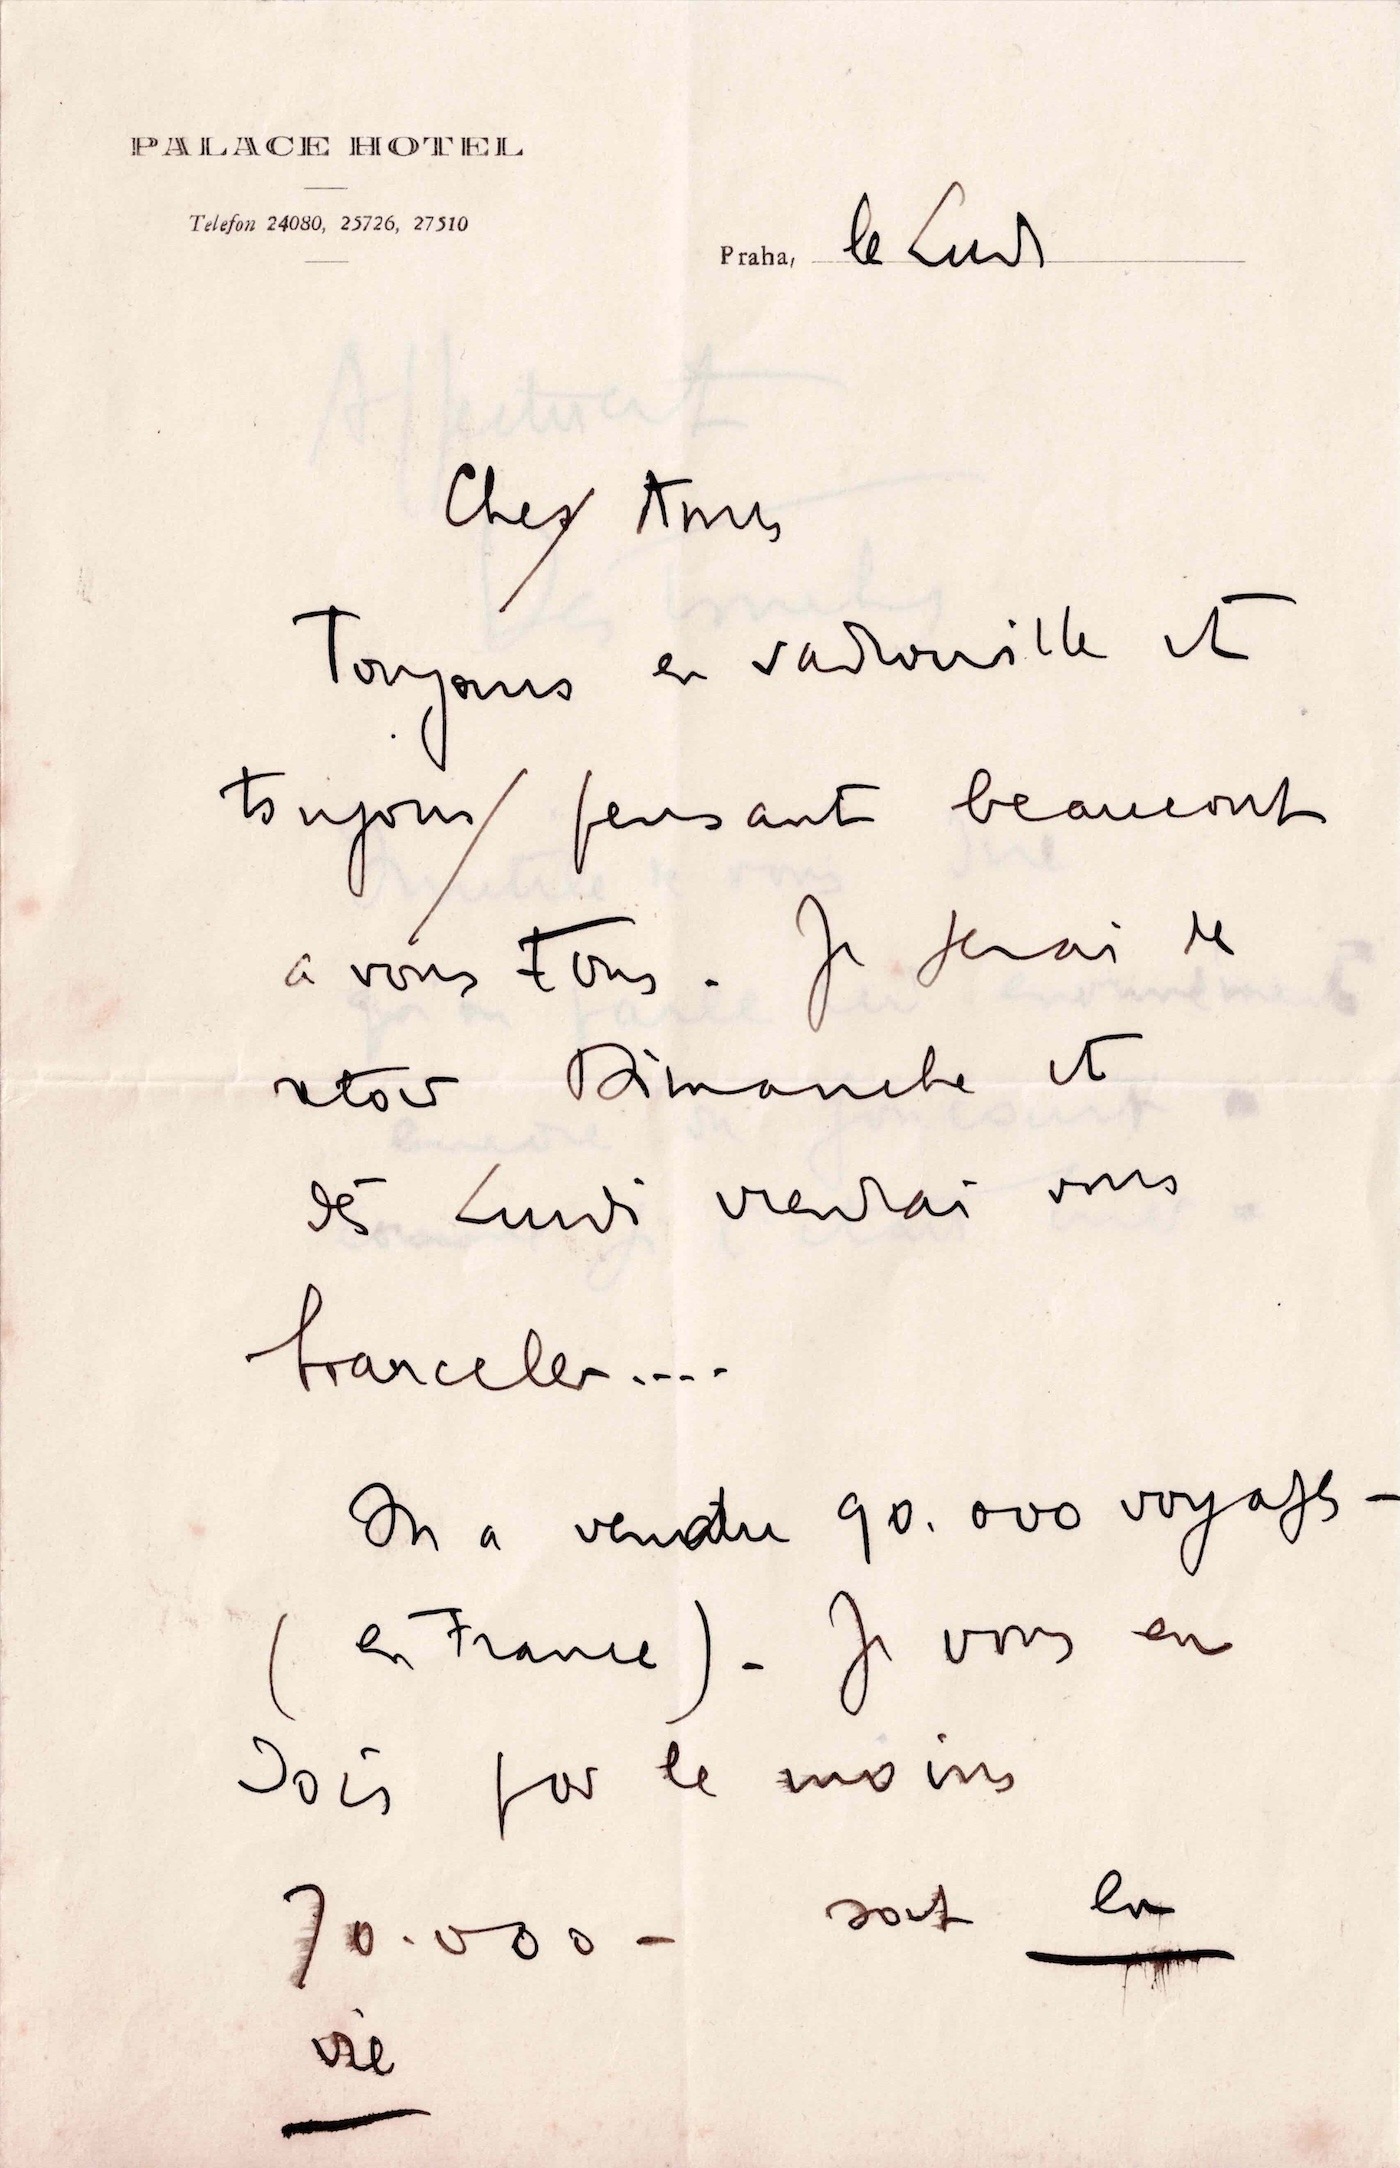 PALACE HOTEL
Telefon 24080, 25726, 27510
Praha, le Lundi
Chers Amis
Toujours en vadrouille et
toujours pensant beaucoup
à vous tous. Je serai de
retour Dimanche et
dès Lundi viendrai vous
harceler....
On a vendu 90.000 voyages -
(en France) - Je vous en
dois pour le moins
70.000 - soit la
vie